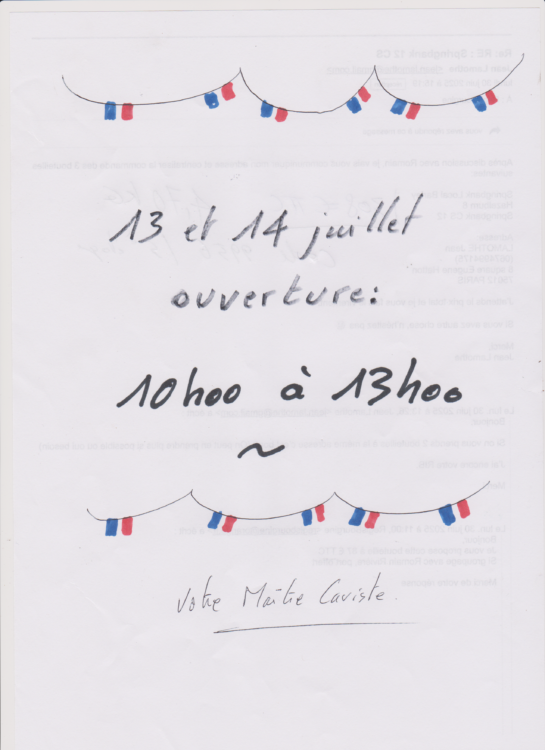 13 et 14 juillet
ouverture:
10h00 à 13h00
~
Votre Maître Caviste.